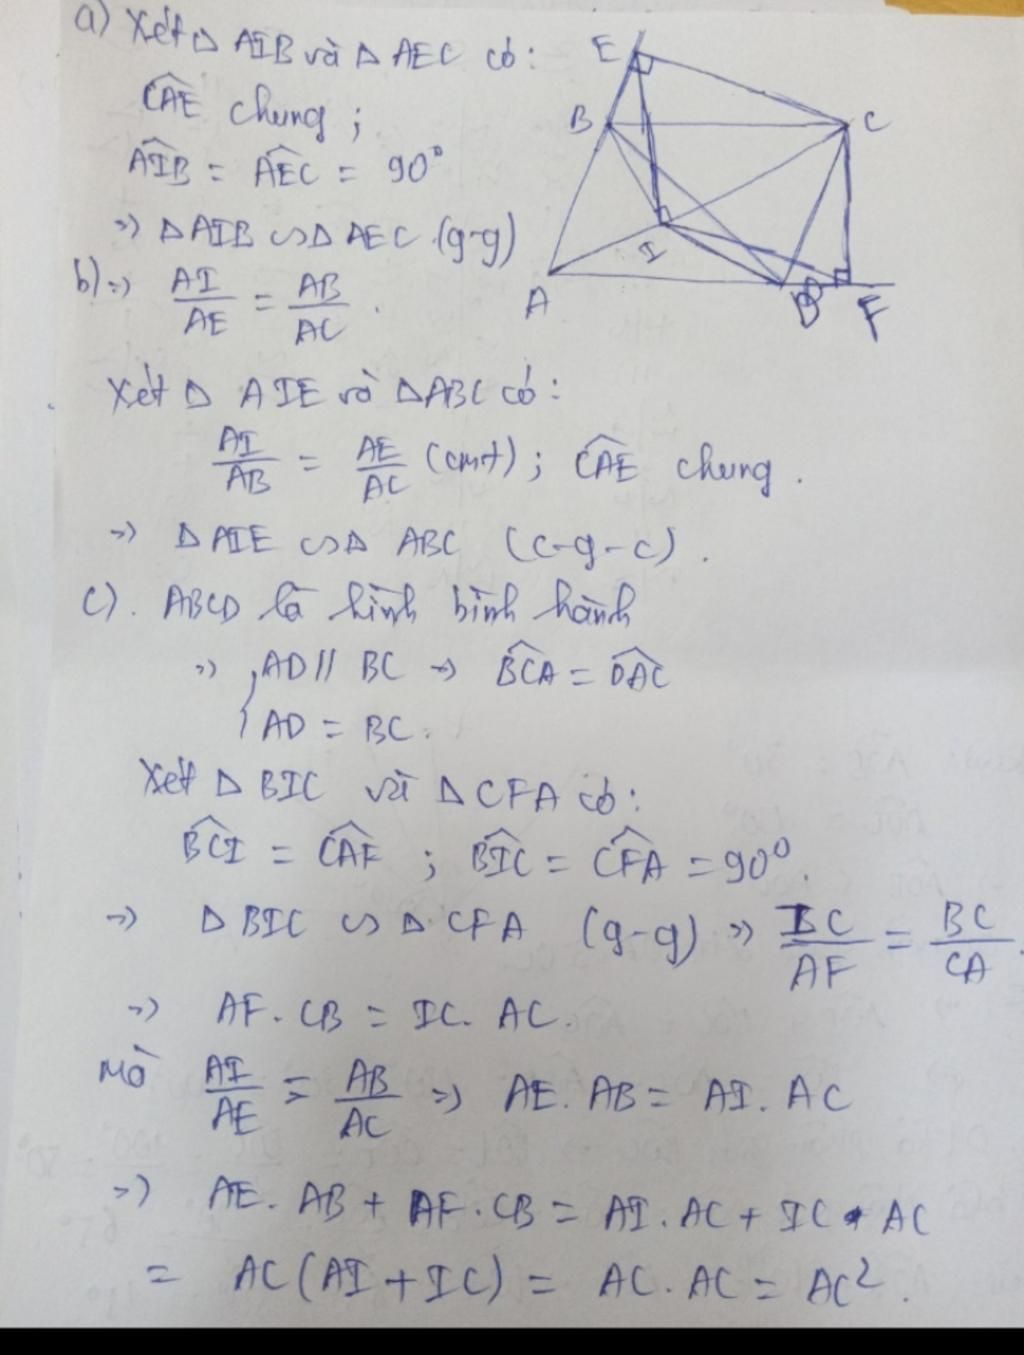 a) Xét Δ AIB và Δ AEC có:
CAE chung ;
AIB = AEC = 90°
=> Δ AIB ∽ Δ AEC (g-g)
b) => AI/AE = AB/AC .
E
B
C
I
A
D
F
Xét Δ AIE và Δ ABC có:
AI/AB = AE/AC (cmt) ; CAE chung .
=> Δ AIE ∽ Δ ABC (c-g-c) .
c). ABCD là hình bình hành
=> { AD // BC => BCA = DAC
AD = BC .
Xét Δ BIC và Δ CFA có:
BCI = CAF ; BIC = CFA = 90° .
=> Δ BIC ∽ Δ CFA (g-g) => IC/AF = BC/CA .
=> AF . CB = IC . AC .
Mà AI/AE = AB/AC => AE . AB = AI . AC
=> AE . AB + AF . CB = AI . AC + IC . AC
= AC (AI + IC) = AC . AC = AC² .